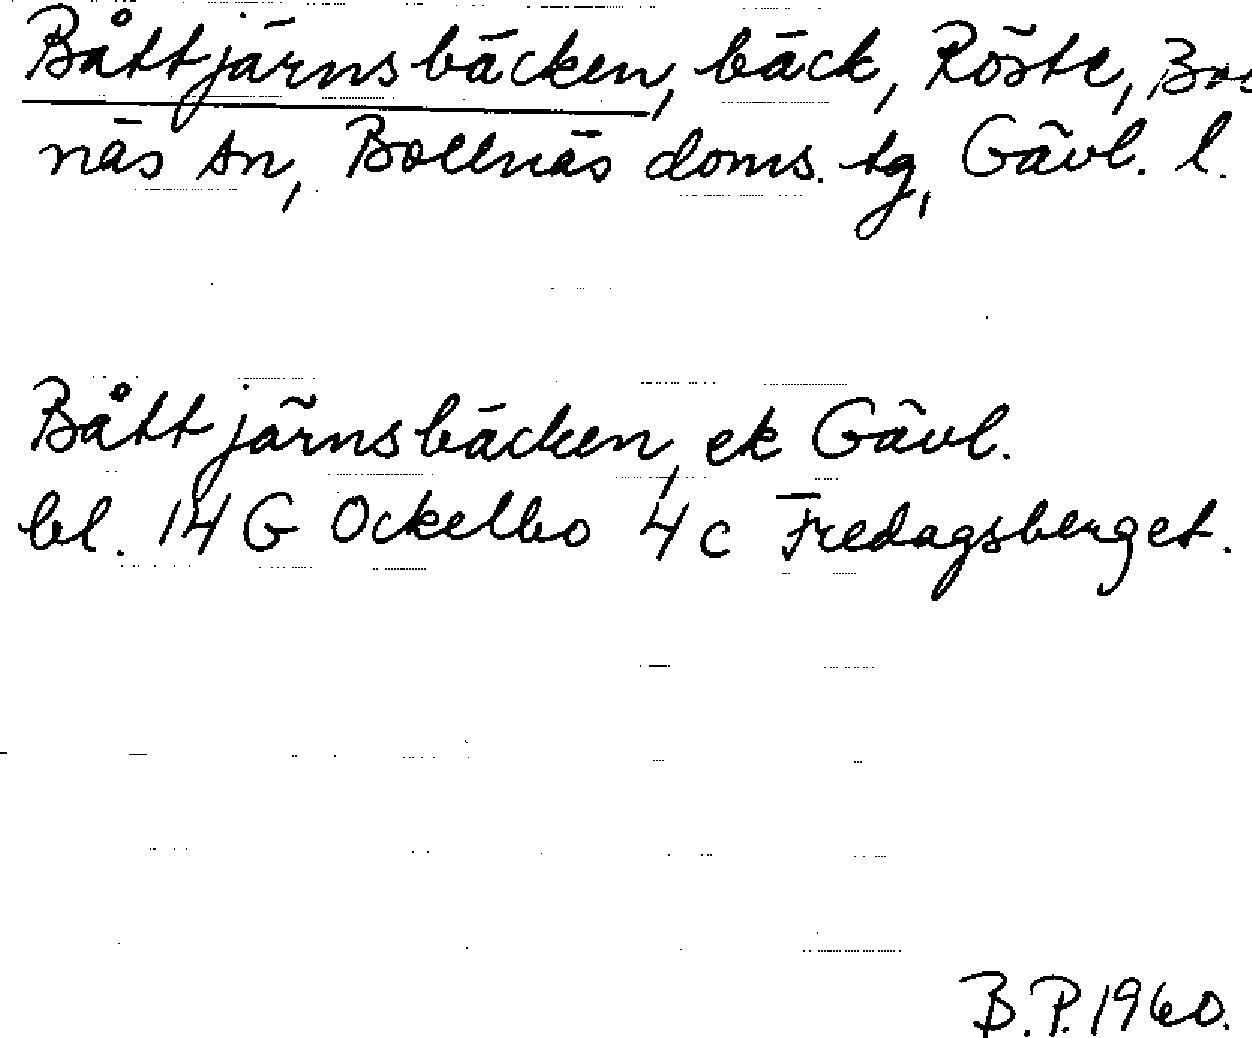 Båttjärnsbäcken, bäck, Röste, Bo
näs sn, Bollnäs doms. tg, Gävl. l.
Båttjärnsbäcken, ek Gävl.
bl. 14 G Ockelbo 4 c Fredagsberget.
B.P. 1960.